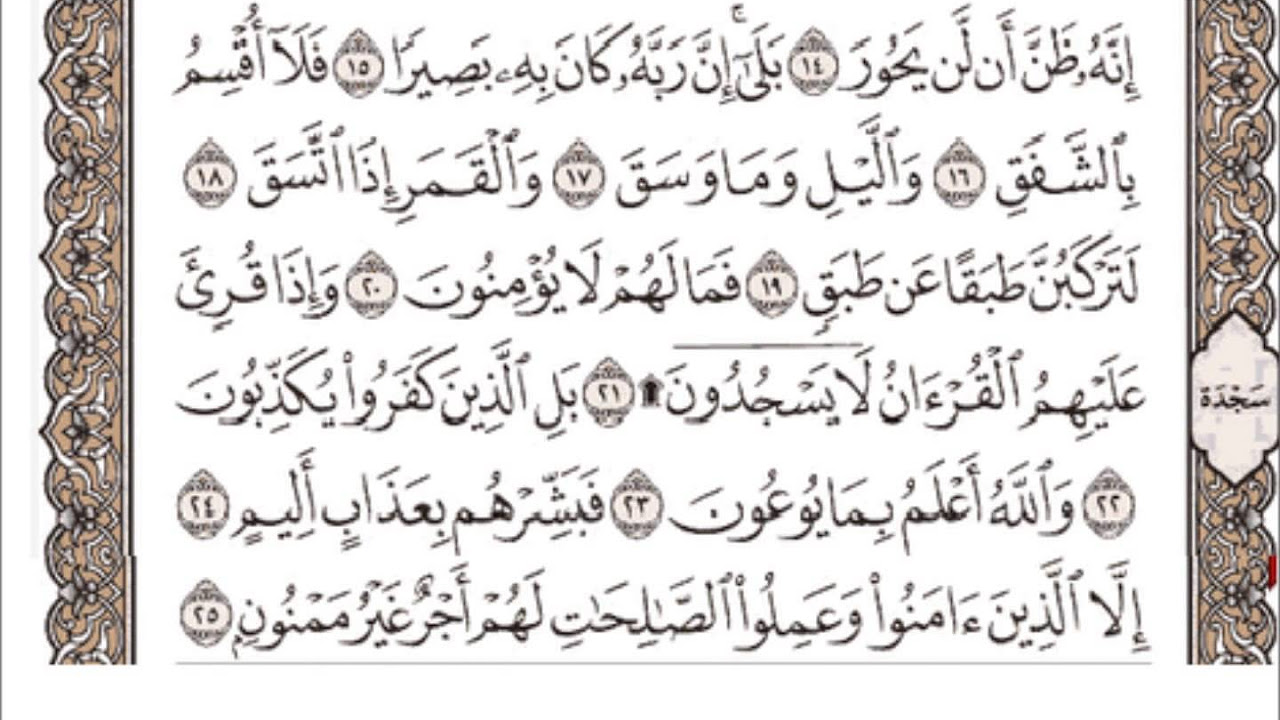 إِنَّهُۥ ظَنَّ أَن لَّن يَحُورَ ١٤ بَلَىٰٓۚ إِنَّ رَبَّهُۥ كَانَ بِهِۦ بَصِيرًا ١٥ فَلَآ أُقْسِمُ
بِٱلشَّفَقِ ١٦ وَٱلَّيْلِ وَمَا وَسَقَ ١٧ وَٱلْقَمَرِ إِذَا ٱتَّسَقَ ١٨
لَتَرْكَبُنَّ طَبَقًا عَن طَبَقٍ ١٩ فَمَا لَهُمْ لَا يُؤْمِنُونَ ٢٠ وَإِذَا قُرِئَ
عَلَيْهِمُ ٱلْقُرْءَانُ لَا يَسْجُدُونَ ۩ ٢١ بَلِ ٱلَّذِينَ كَفَرُوا۟ يُكَذِّبُونَ
سَجْدَة
٢٢ وَٱللَّهُ أَعْلَمُ بِمَا يُوعُونَ ٢٣ فَبَشِّرْهُم بِعَذَابٍ أَلِيمٍ ٢٤
إِلَّا ٱلَّذِينَ ءَامَنُوا۟ وَعَمِلُوا۟ ٱلصَّـٰلِحَـٰتِ لَهُمْ أَجْرٌ غَيْرُ مَمْنُونٍۭ ٢٥